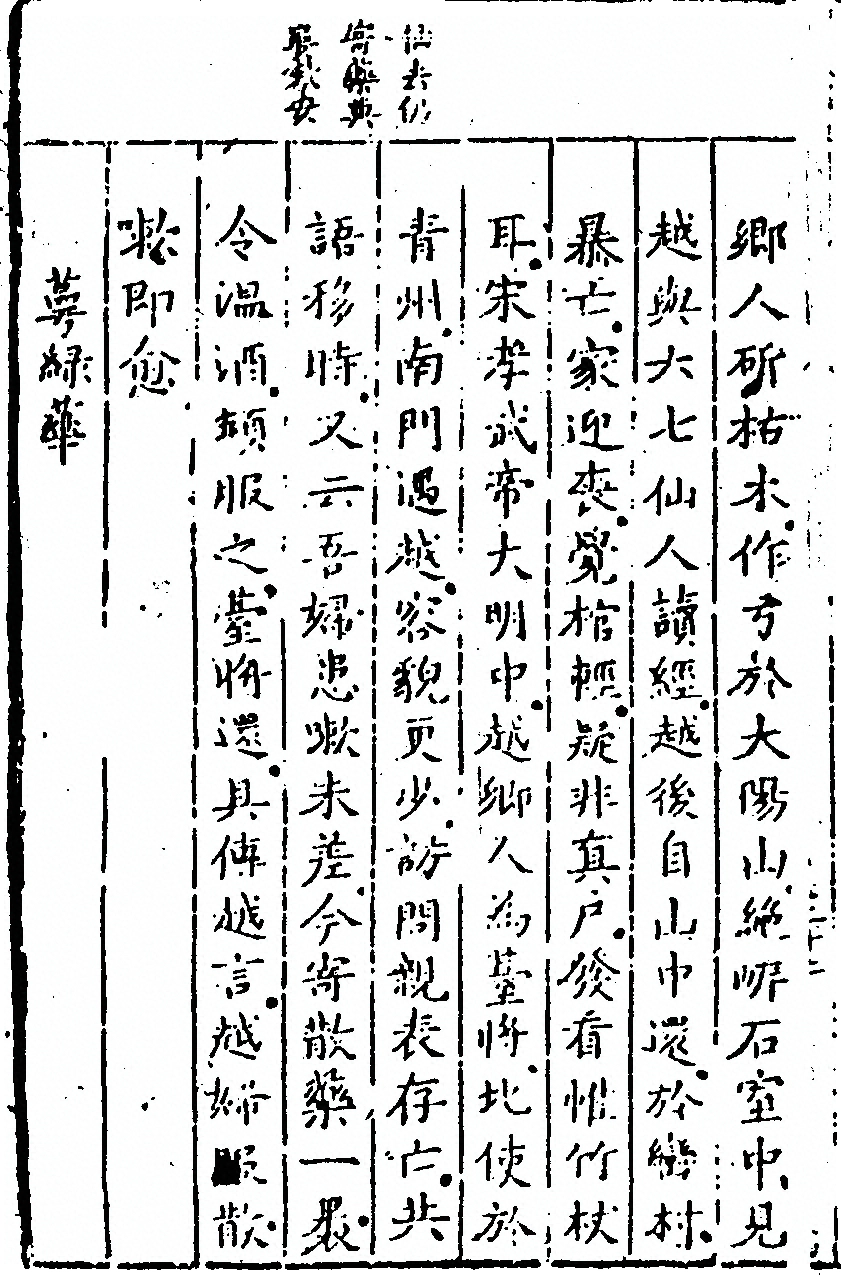 仙去仍
寄藥與
鄉人斫枯木作弓於大陽山絕崖石室中見
越與六七仙人讀經越後自山中還於巒村
暴亡家迎喪覺棺輕疑非真尸發看惟竹杖
耳宋孝武帝大明中越鄉人為臺將北使於
青州南門遇越容貌更少訪問親表存亡共
語移時又云吾婦患嗽未差今寄散藥一裹
令溫酒頓服之臺將還具傳越言越婦服散
嗽即愈
萼綠華